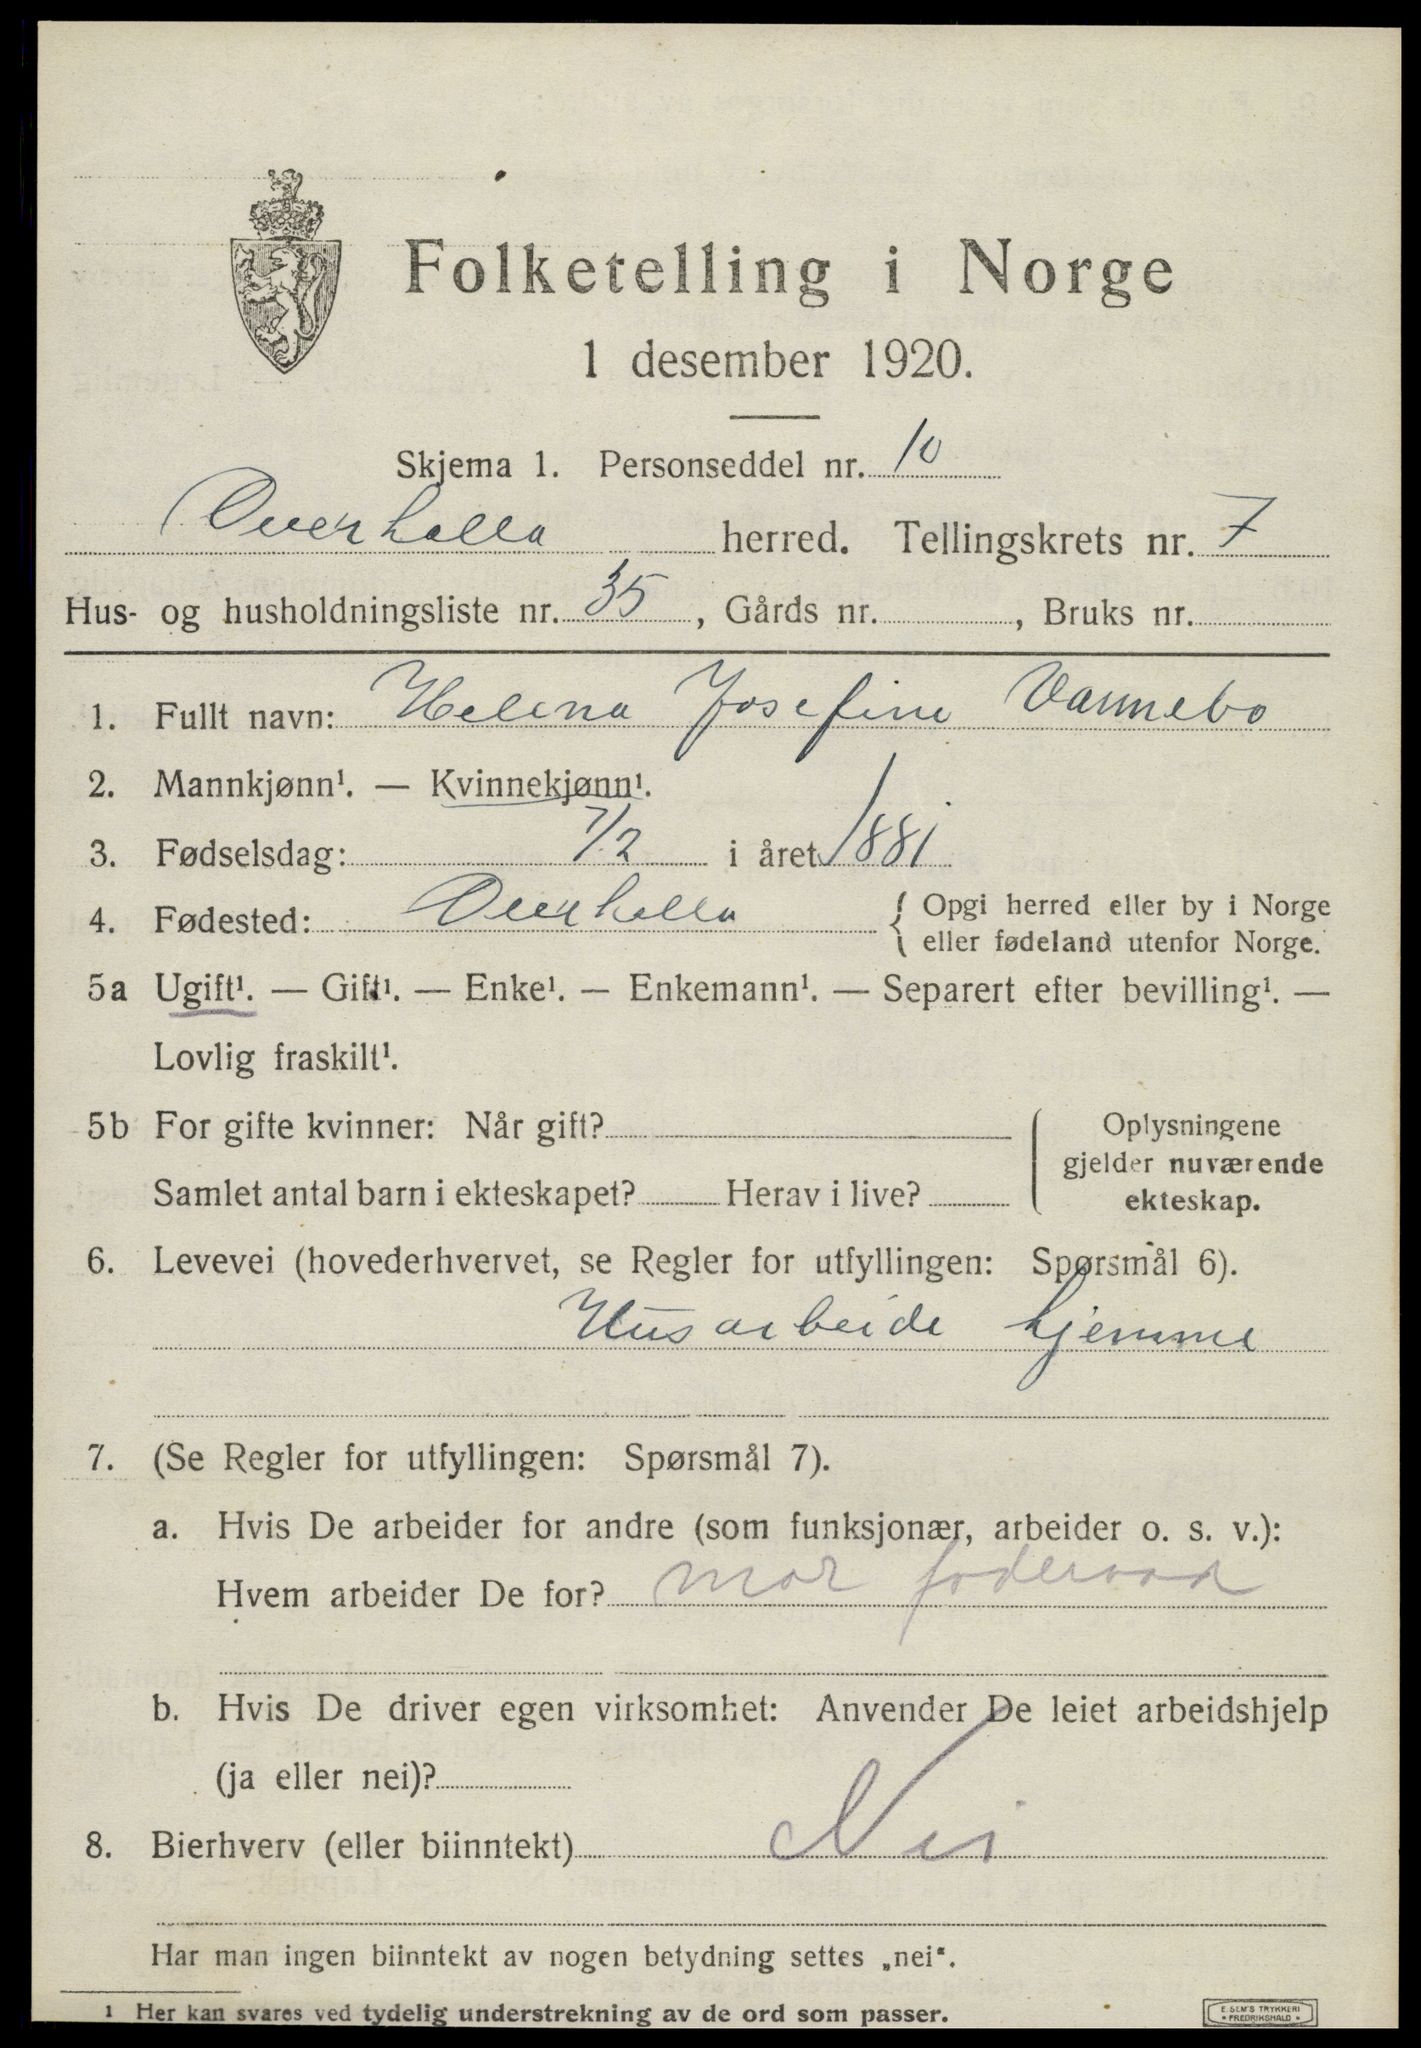 Folketelling i Norge
1 desember 1920.
Skjema 1. Personseddel nr. 10
Overhalla herred. Tellingskrets nr. 7
Hus- og husholdningsliste nr. 35, Gårds nr. , Bruks nr.
1. Fullt navn: Helena Josefine Vannebo
2. Mannkjønn¹. — Kvinnekjønn¹.
3. Fødselsdag: 7/2 i året 1881
4. Fødested: Overhalla { Opgi herred eller by i Norge
eller fødeland utenfor Norge.
5a Ugift¹. — Gift¹. — Enke¹. — Enkemann¹. — Separert efter bevilling¹. —
Lovlig fraskilt¹.
5b For gifte kvinner: Når gift?
Samlet antal barn i ekteskapet? Herav i live?
Oplysningene
gjelder nuværende
ekteskap.
6. Levevei (hovederhvervet, se Regler for utfyllingen: Spørsmål 6).
Husarbeide hjemme
7. (Se Regler for utfyllingen: Spørsmål 7).
a. Hvis De arbeider for andre (som funksjonær, arbeider o. s. v.):
Hvem arbeider De for? mor foderaad
b. Hvis De driver egen virksomhet: Anvender De leiet arbeidshjelp
(ja eller nei)?
8. Bierhverv (eller biinntekt) Nei
Har man ingen biinntekt av nogen betydning settes „nei".
1 Her kan svares ved tydelig understrekning av de ord som passer.
E. SEM'S TRYKKERI
• FREDRIKSHALD •